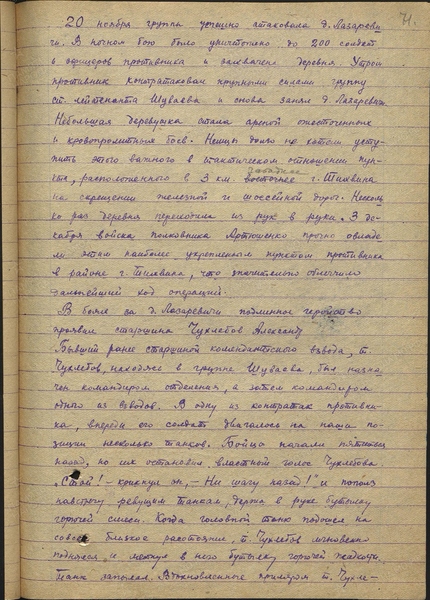 71.
20 ноября группа успешно атаковала д. Лазареви-
чи. В ночном бою было уничтожено до 200 солдат
и офицеров противника и захвачена деревня. Утром
противник контратаковал крупными силами группу
ст. лейтенанта Шуваева и снова занял д. Лазаревичи.
Небольшая деревушка стала ареной ожесточенных
и кровопролитных боев. Немцы долго не хотели усту-
пить этого важного в тактическом отношении пунк-
та, расположенного в 3 км. западнее восточнее г. Тихвина
на скрещении железной и шоссейной дорог. Несколь-
ко раз деревня переходила из рук в руки. 3 де-
кабря войска полковника Артюшенко прочно овладе-
ли этим наиболее укрепленным пунктом противника
в районе г. Тихвина, что значительно облегчило
дальнейший ход операций.
В боях за д. Лазаревичи подлинное геройство
проявил старшина Чухлебов Александр
Бывший ранее старшиной комендантского взвода, т.
Чухлебов, находясь в группе Шуваева, был назна-
чен командиром отделения, а затем командиром
одного из взводов. В одну из контратак противни-
ка, впереди его солдат двигалось на наши по-
зиции несколько танков. Бойцы начали пятиться
назад, но их остановил властный голос Чухлебова.
"Стой! - крикнул он, - Ни шагу назад!" и пополз
навстречу ревущим танкам, держа в руке бутылку
горючей смеси. Когда головной танк подошел на
совсем близкое расстояние, т. Чухлебов мгновенно
поднялся и метнул в него бутылку горючей жидкости.
Танк запылал. Вдохновленные примером т. Чухле-